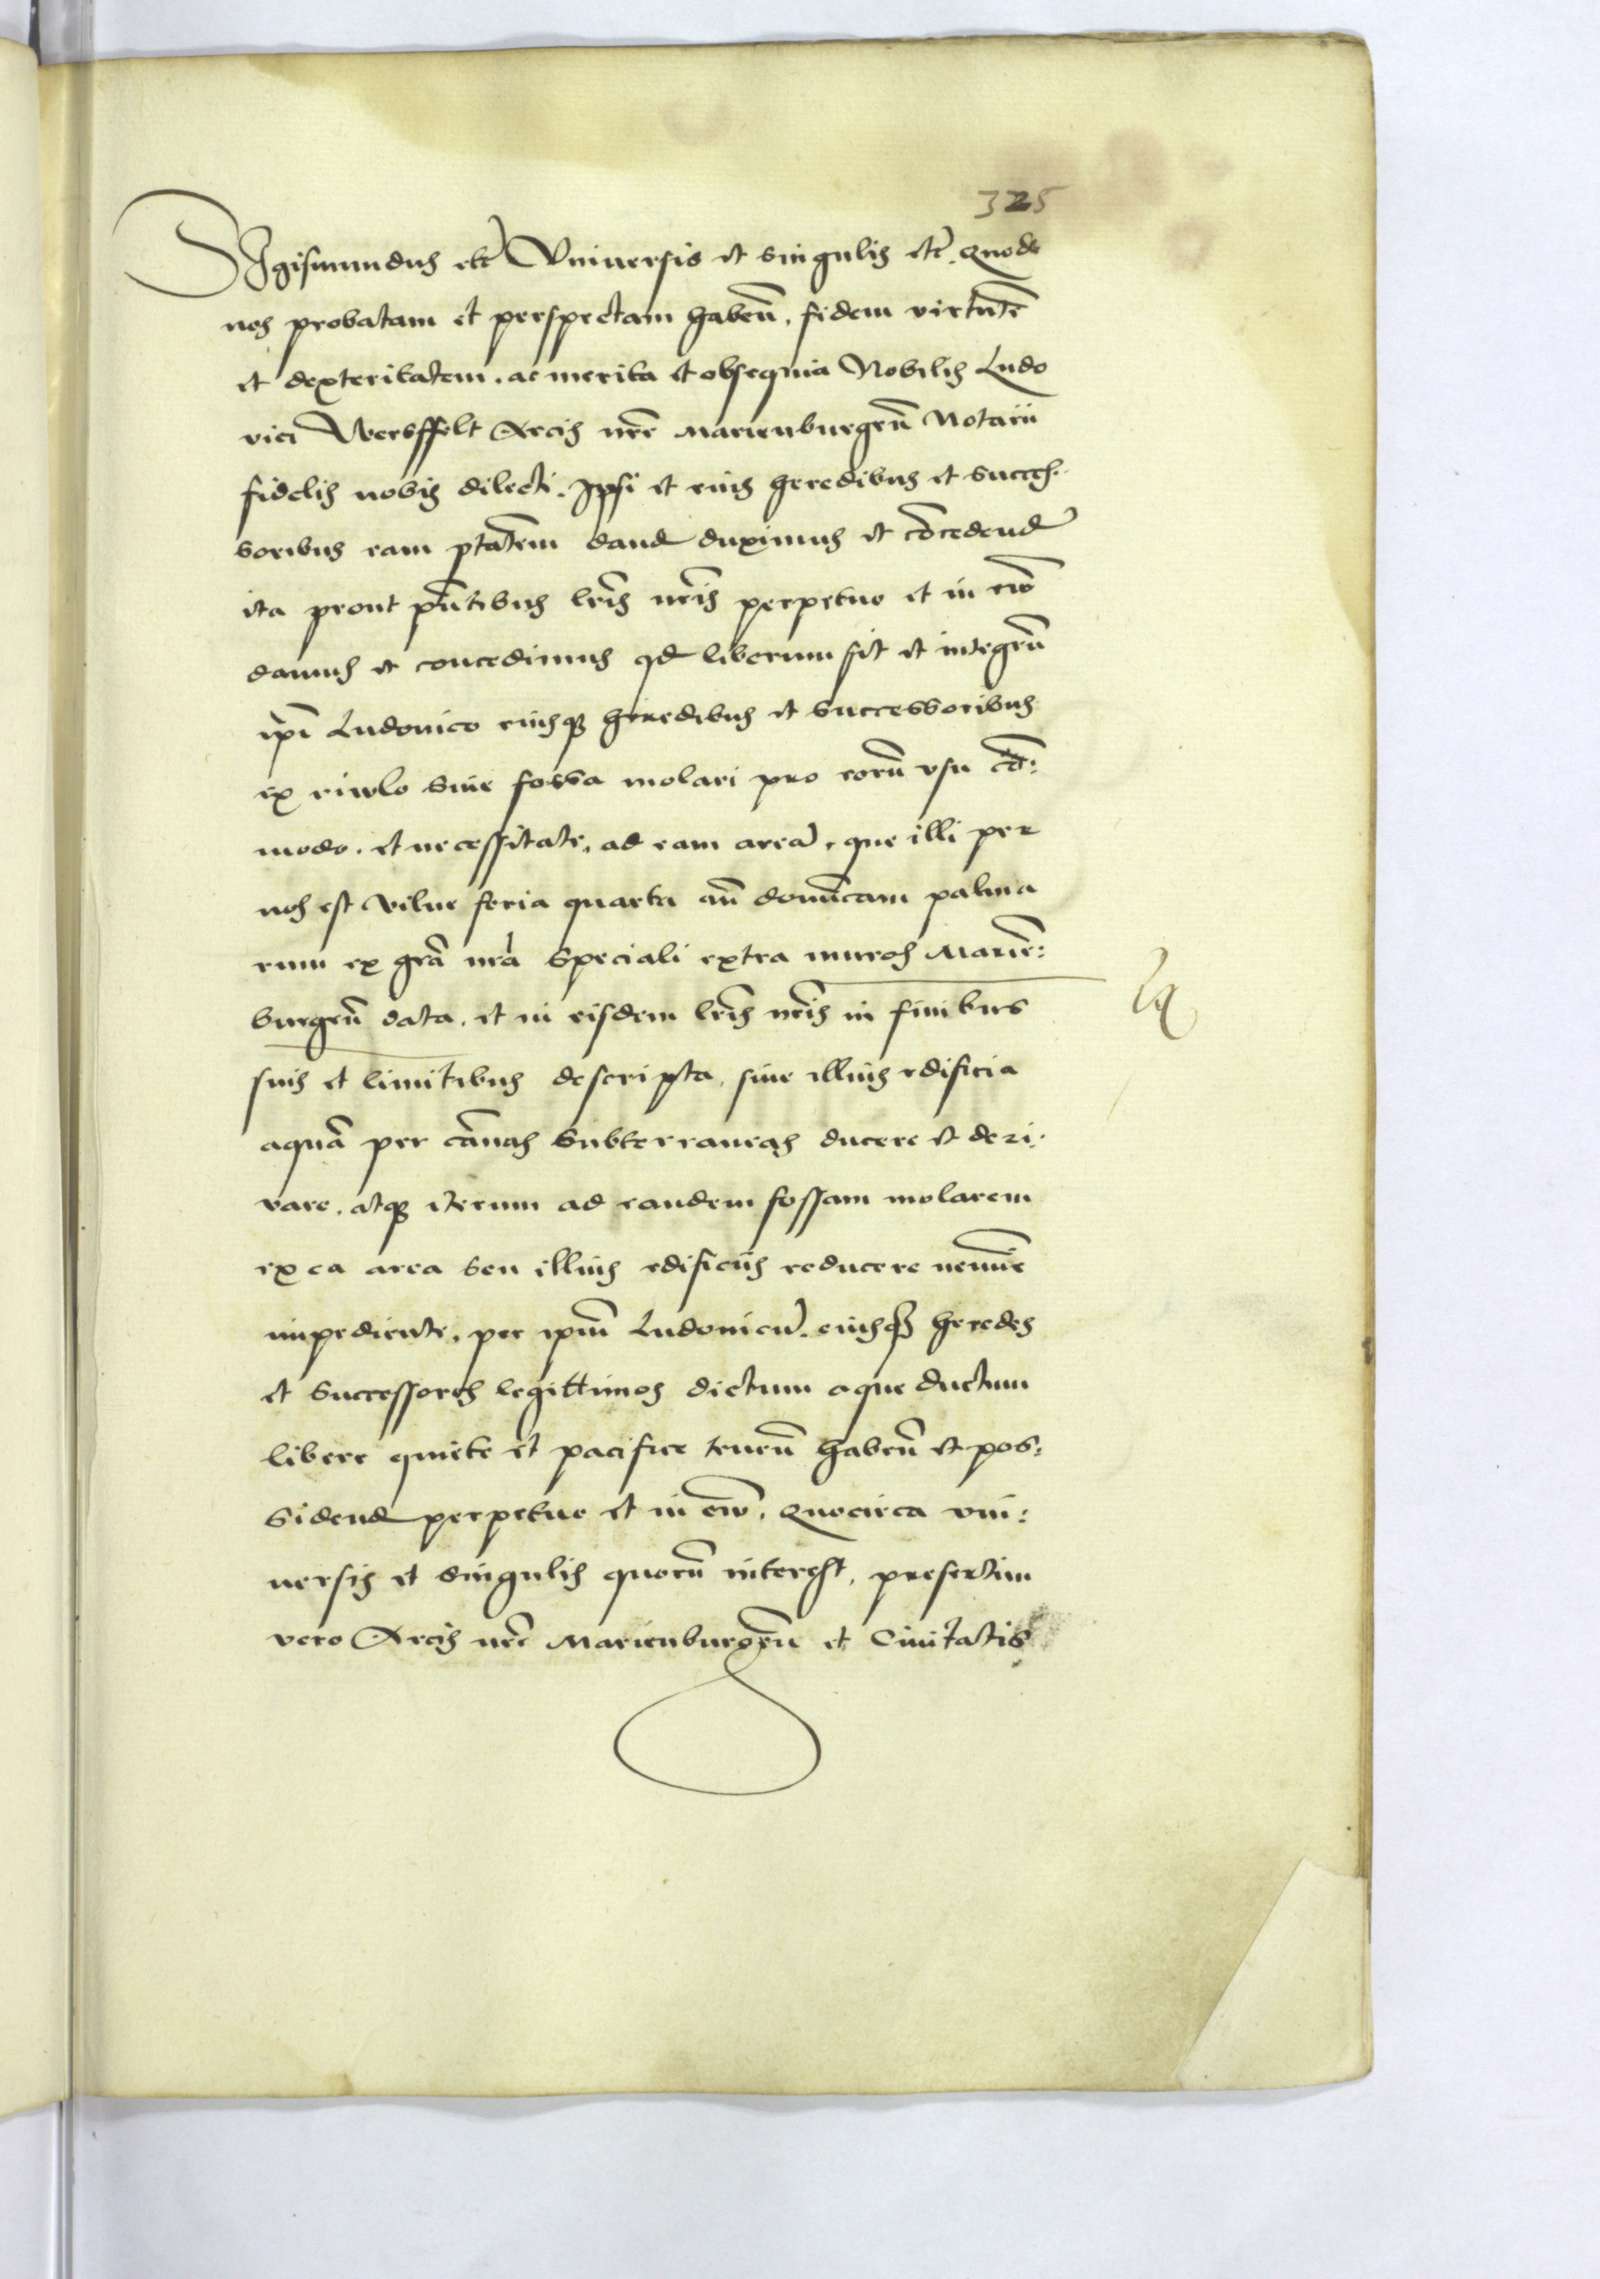 325
Sigismundus etc̃ Vniuersis et singulis etc̃. Quod
nos probatam et perspectam habeñ. fidem virtutẽ
et dexteritatem. ac merita et obsequia Nobilis Ludo
vici Wersffelt Arcis nr̃e Marienburgeñ Notarii
fidelis nobis dilecti. Ipsi et eius heredibus et succes-
soribus eam ptãtem dand duximus et cõcedend
ita prout pñtibus lr̃is nr̃is perpetuo et in ewõ
damus et concedimus qd liberum sit et integrũ
ip̃i Ludouico eiusq; heredibus et successoribus
ex riwlo siue fossa molari pro eorũ vsu cõ:
modo. et necessitate. ad eam areã. que illi per
nos est Vilne feria quarta añ domĩcam palma
rum ex grã nrã speciali extra muros Mariẽ:
burgeñ data. et in eisdem lr̃is nr̃is in finibus
suis et limitibus descripta, siue illius edificia
aquã per cãnas subterraneas ducere et deri:
vare. atq; iterum ad eandem fossam molarem
ex ea area seu illius edificiis reducere nemĩe
impediente. per ip̃um Ludouicũ. eiusq; heredes
et successores legittimos dictum aque ductum
libere quiete et pacifice teneñ habeñ et pos:
sidend perpetuo et in ewõ. Quocirca vni:
uersis et singulis quorũ interest, presertim
vero Arcis nr̃e Marienburgeñ et Ciuitatis